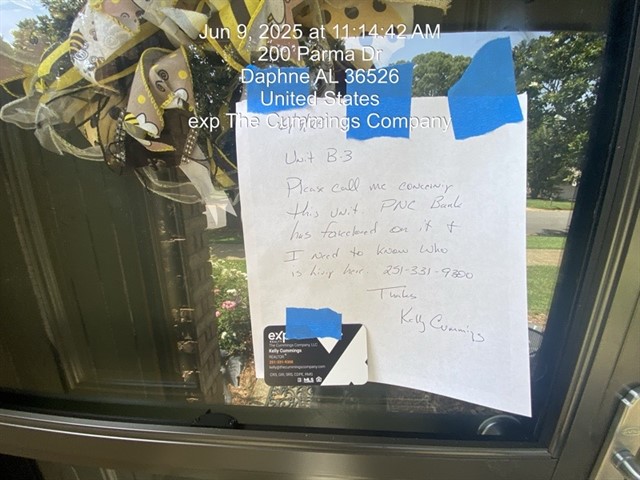 Jun 9, 2025 at 11:14:42 AM
200 Parma Dr
Daphne AL 36526
United States
exp The Cummings Company
Unit B-3
Please call me concerning
this unit. PNC Bank
has foreclosed on it &
I need to know who
is living here. 251-331-9300
Thanks
Kelly Cummings
exp
The Cummings Company, LLC
Kelly Cummings
REALTOR
MLS